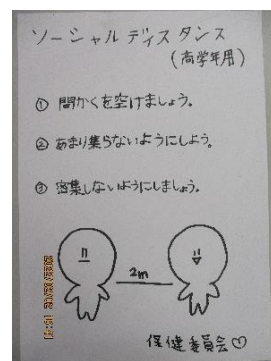 ソーシャルディスタンス
(高学年用)
① 間かくを空けましょう。
② あまり集らないようにしよう。
③ 密集しないようにしましょう。
2m
保健委員会♡